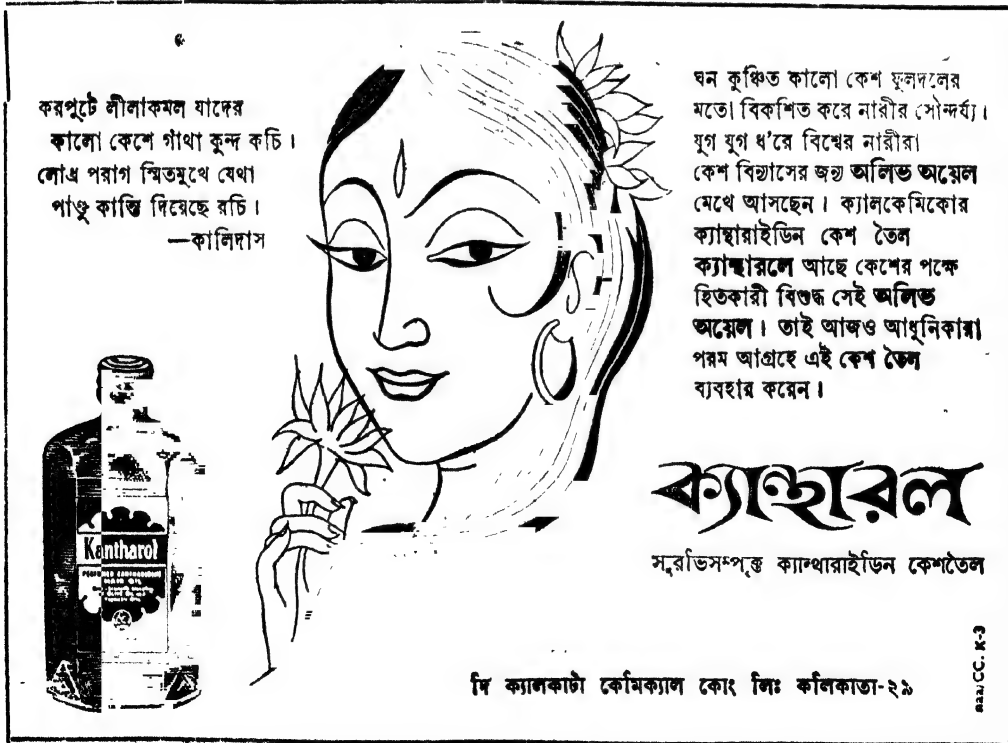 করপুটে লীলাকমল যাদের
কালো কেশে গাঁথা কুন্দ কচি ।
লোধ্র পরাগ স্মিতমুখে যেথা
পাণ্ডু কান্তি দিয়েছে রচি ।
—কালিদাস
ঘন কুঞ্চিত কালো কেশ ফুলদলের
মতো বিকশিত করে নারীর সৌন্দর্য্য ।
যুগ যুগ ধ'রে বিশ্বের নারীরা
কেশ বিন্যাসের জন্য অলিভ অয়েল
মেখে আসছেন । ক্যালকেমিকোর
ক্যান্থারাইডিন কেশ তৈল
ক্যান্থারলে আছে কেশের পক্ষে
হিতকারী বিশুদ্ধ সেই অলিভ
অয়েল । তাই আজও আধুনিকারা
পরম আগ্রহে এই কেশ তৈল
ব্যবহার করেন ।
Kantharol
ক্যান্থারল
সুরভিসম্পৃক্ত ক্যান্থারাইডিন কেশতৈল
দি ক্যালকাটা কেমিক্যাল কোং লিঃ কলিকাতা-২৯
CC. K-3